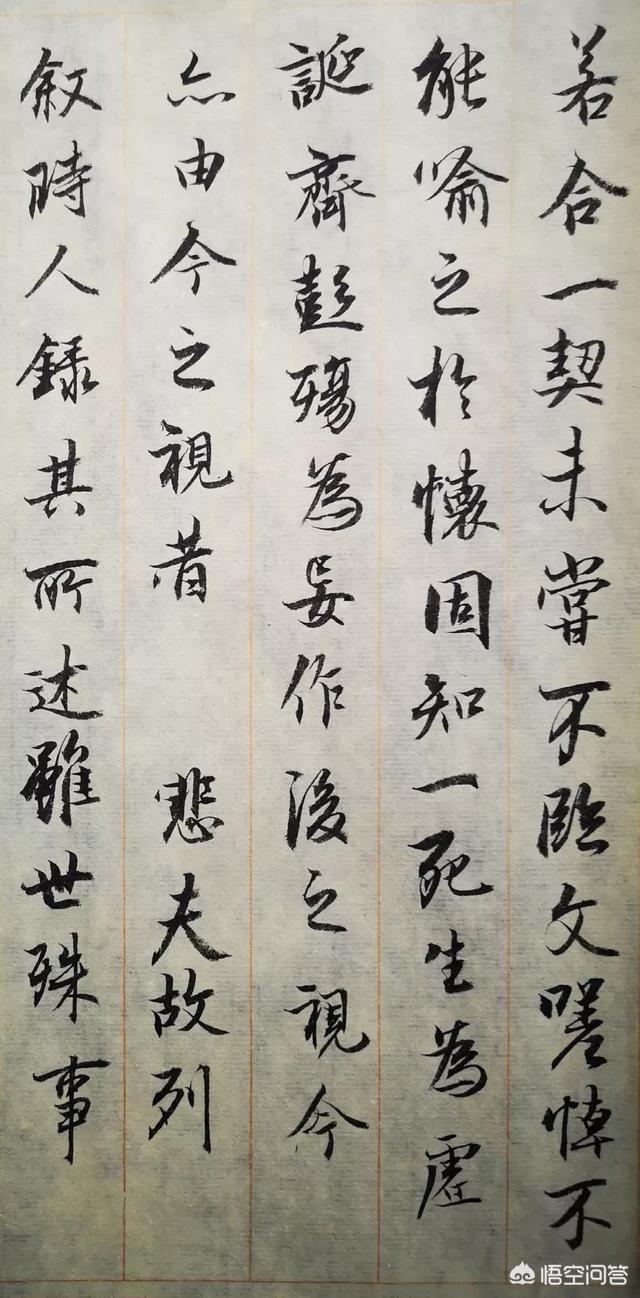 若合一契未嘗不臨文嗟悼不
能喻之於懷固知一死生為虛
誕齊彭殤為妄作後之視今
亦由今之視昔 悲夫故列
敘時人錄其所述雖世殊事
悟空问答